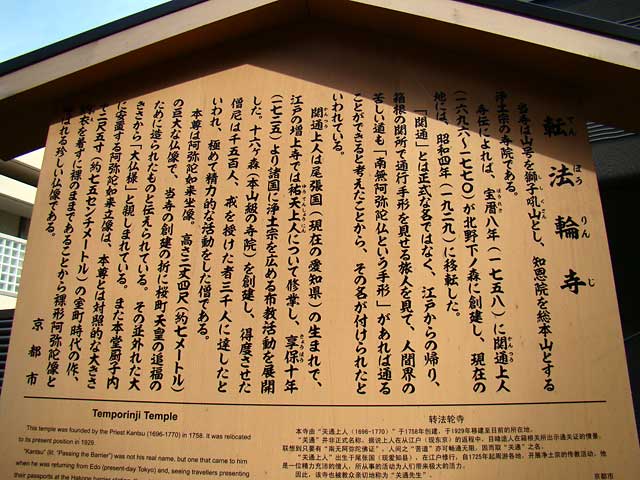 転法輪寺
てんぽうりんじ
当寺は山号を獅子吼山とし、知恩院を総本山とする
浄土宗の寺院である。
寺伝によれば、宝暦八年（一七五八）に関通上人
（一六九六～一七七〇）が北野下ノ森に創建し、現在の
地には、昭和四年（一九二九）に移転した。
「関通」とは正式な名ではなく、江戸からの帰り、
箱根の関所で通行手形を見せる旅人を見て、人間界の
苦しい道も「南無阿弥陀仏という手形」があれば通る
ことができると考えたことから、その名が付けられたと
いわれている。
関通上人は尾張国（現在の愛知県）の生まれで、
江戸の増上寺では祐天上人について修業し、享保十年
（一七二五）より諸国に浄土宗を広める布教活動を展開
した。十六ヶ森（本山級の寺院）を創建し、得度させた
僧尼は千五百人、戒を授けた者三千人に達したと
いわれ、極めて精力的な活動をした僧である。
本尊は阿弥陀如来坐像。高さ二丈四尺（約七メートル）
の巨大な仏像で、当寺の創建の折に桜町天皇の追福の
ために造られたものと伝えられている。その並外れた大
きさから「大仏様」と親しまれている。また本堂厨子内
に安置する阿弥陀如来立像は、本尊とは対照的な大きさ
で二尺五寸（約七五センチメートル）の室町時代の作、
衣を着ずに裸のままであることから裸形阿弥陀像と
ばれる珍しい仏像である。
京都市
Temporinji Temple
This temple was founded by the Priest Kantsu (1696-1770) in 1758. It was relocated
to its present position in 1929.
"Kantsu" (lit. "Passing the Barrier") was not his real name, but one that came to him
when he was returning from Edo (present-day Tokyo) and, seeing travellers presenting
their passports at the Hakone barrier
转法轮寺
本寺由"关通上人（1696-1770）"于1758年创建，于1929年移建至目前的所在地。
"关通"并非正式名称。据说上人在从江户（现东京）的返程中，目睹途人在箱根关所出示通关证的情景，
联想到只要有"南无阿弥陀佛证"，人间之"苦道"亦可畅通无阻，因而取"关通"之名。
"关通上人"出生于尾张国（现爱知县），在江户修行，自1725年起周游各地，开展净土宗的传教活动，他
是一位精力充沛的僧人，所从事的活动为人们带来极大的活力。
因此，该寺也被教众亲切地称为"关通先生"。
京都市